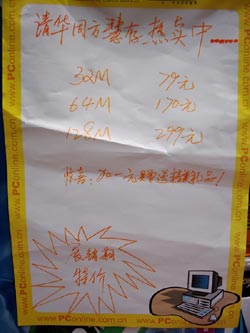 清华同方慧存热卖中......
32M 79元
64M 170元
128M 299元
惊喜:加一元 送精美礼品!
展销期
特价
www.PConline.com.cn
www.PConline.com.cn
www.PConline.com.cn
www.PConline.com.cn